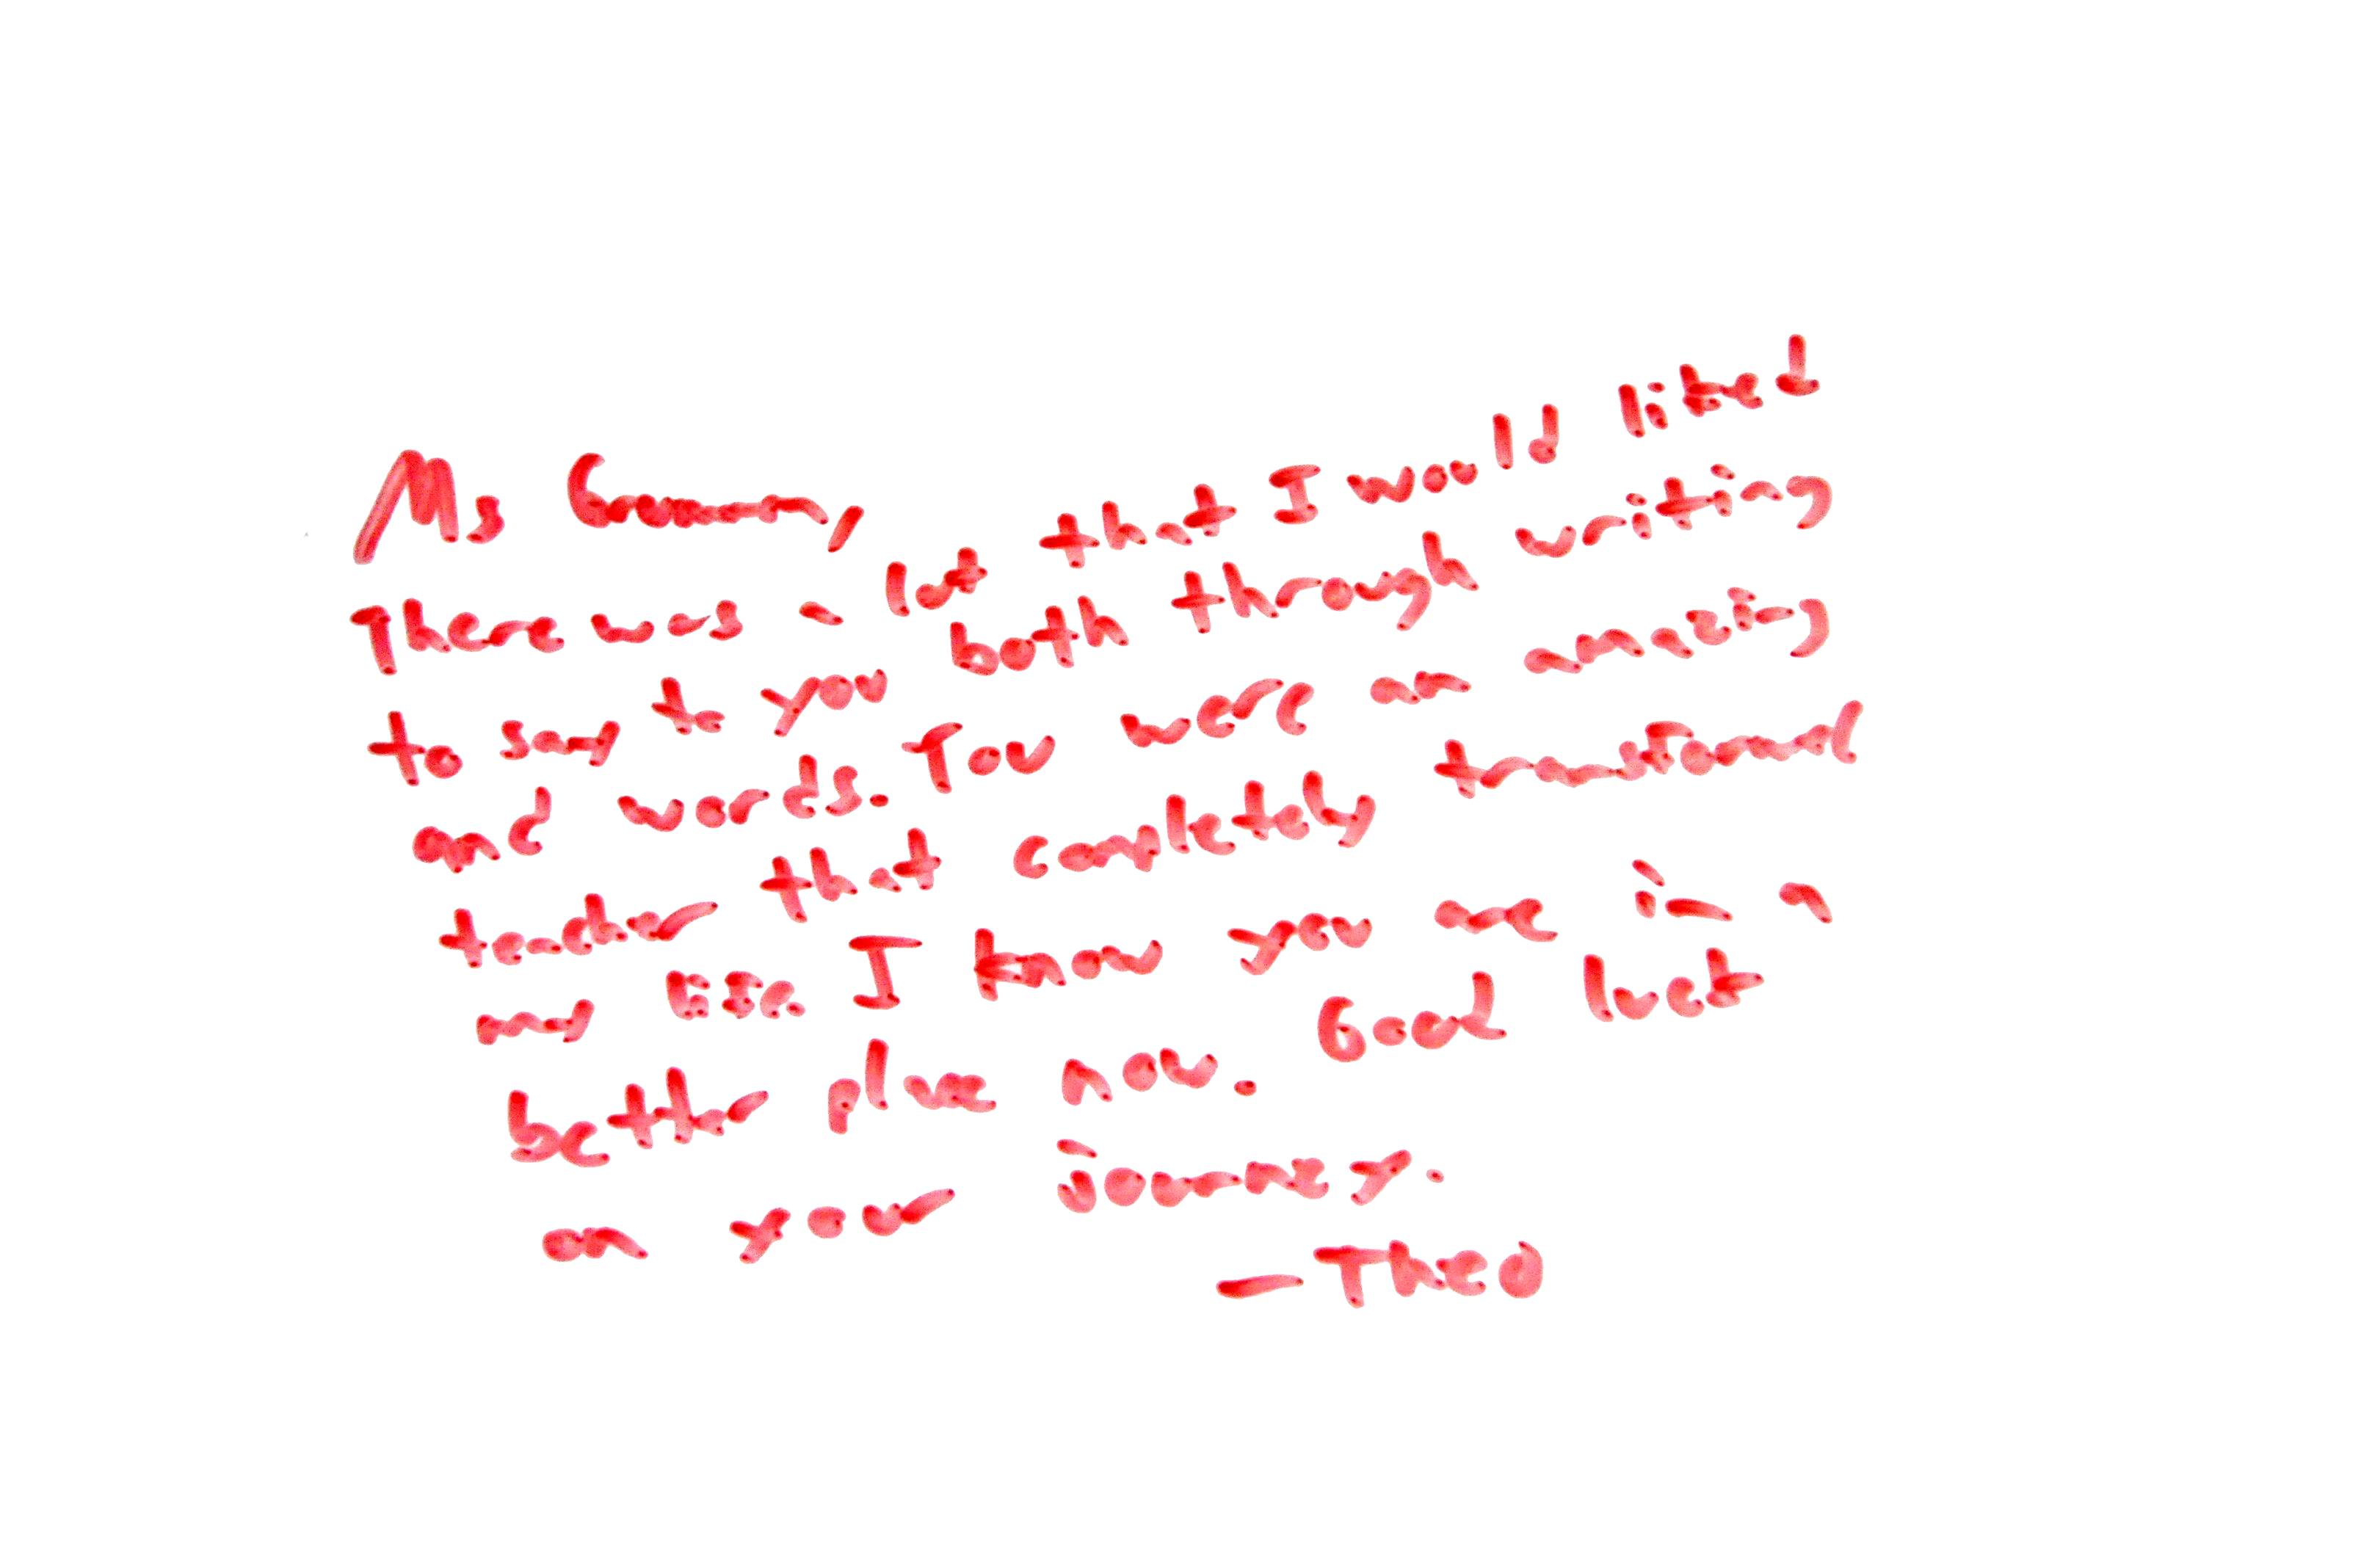 Ms
There was a lot that I would liked
to say to you both through writing
and words. You were an amazing
teacher that completely transformed
my life. I know you are in a
better place now. Good luck
on your journey.
— Theo